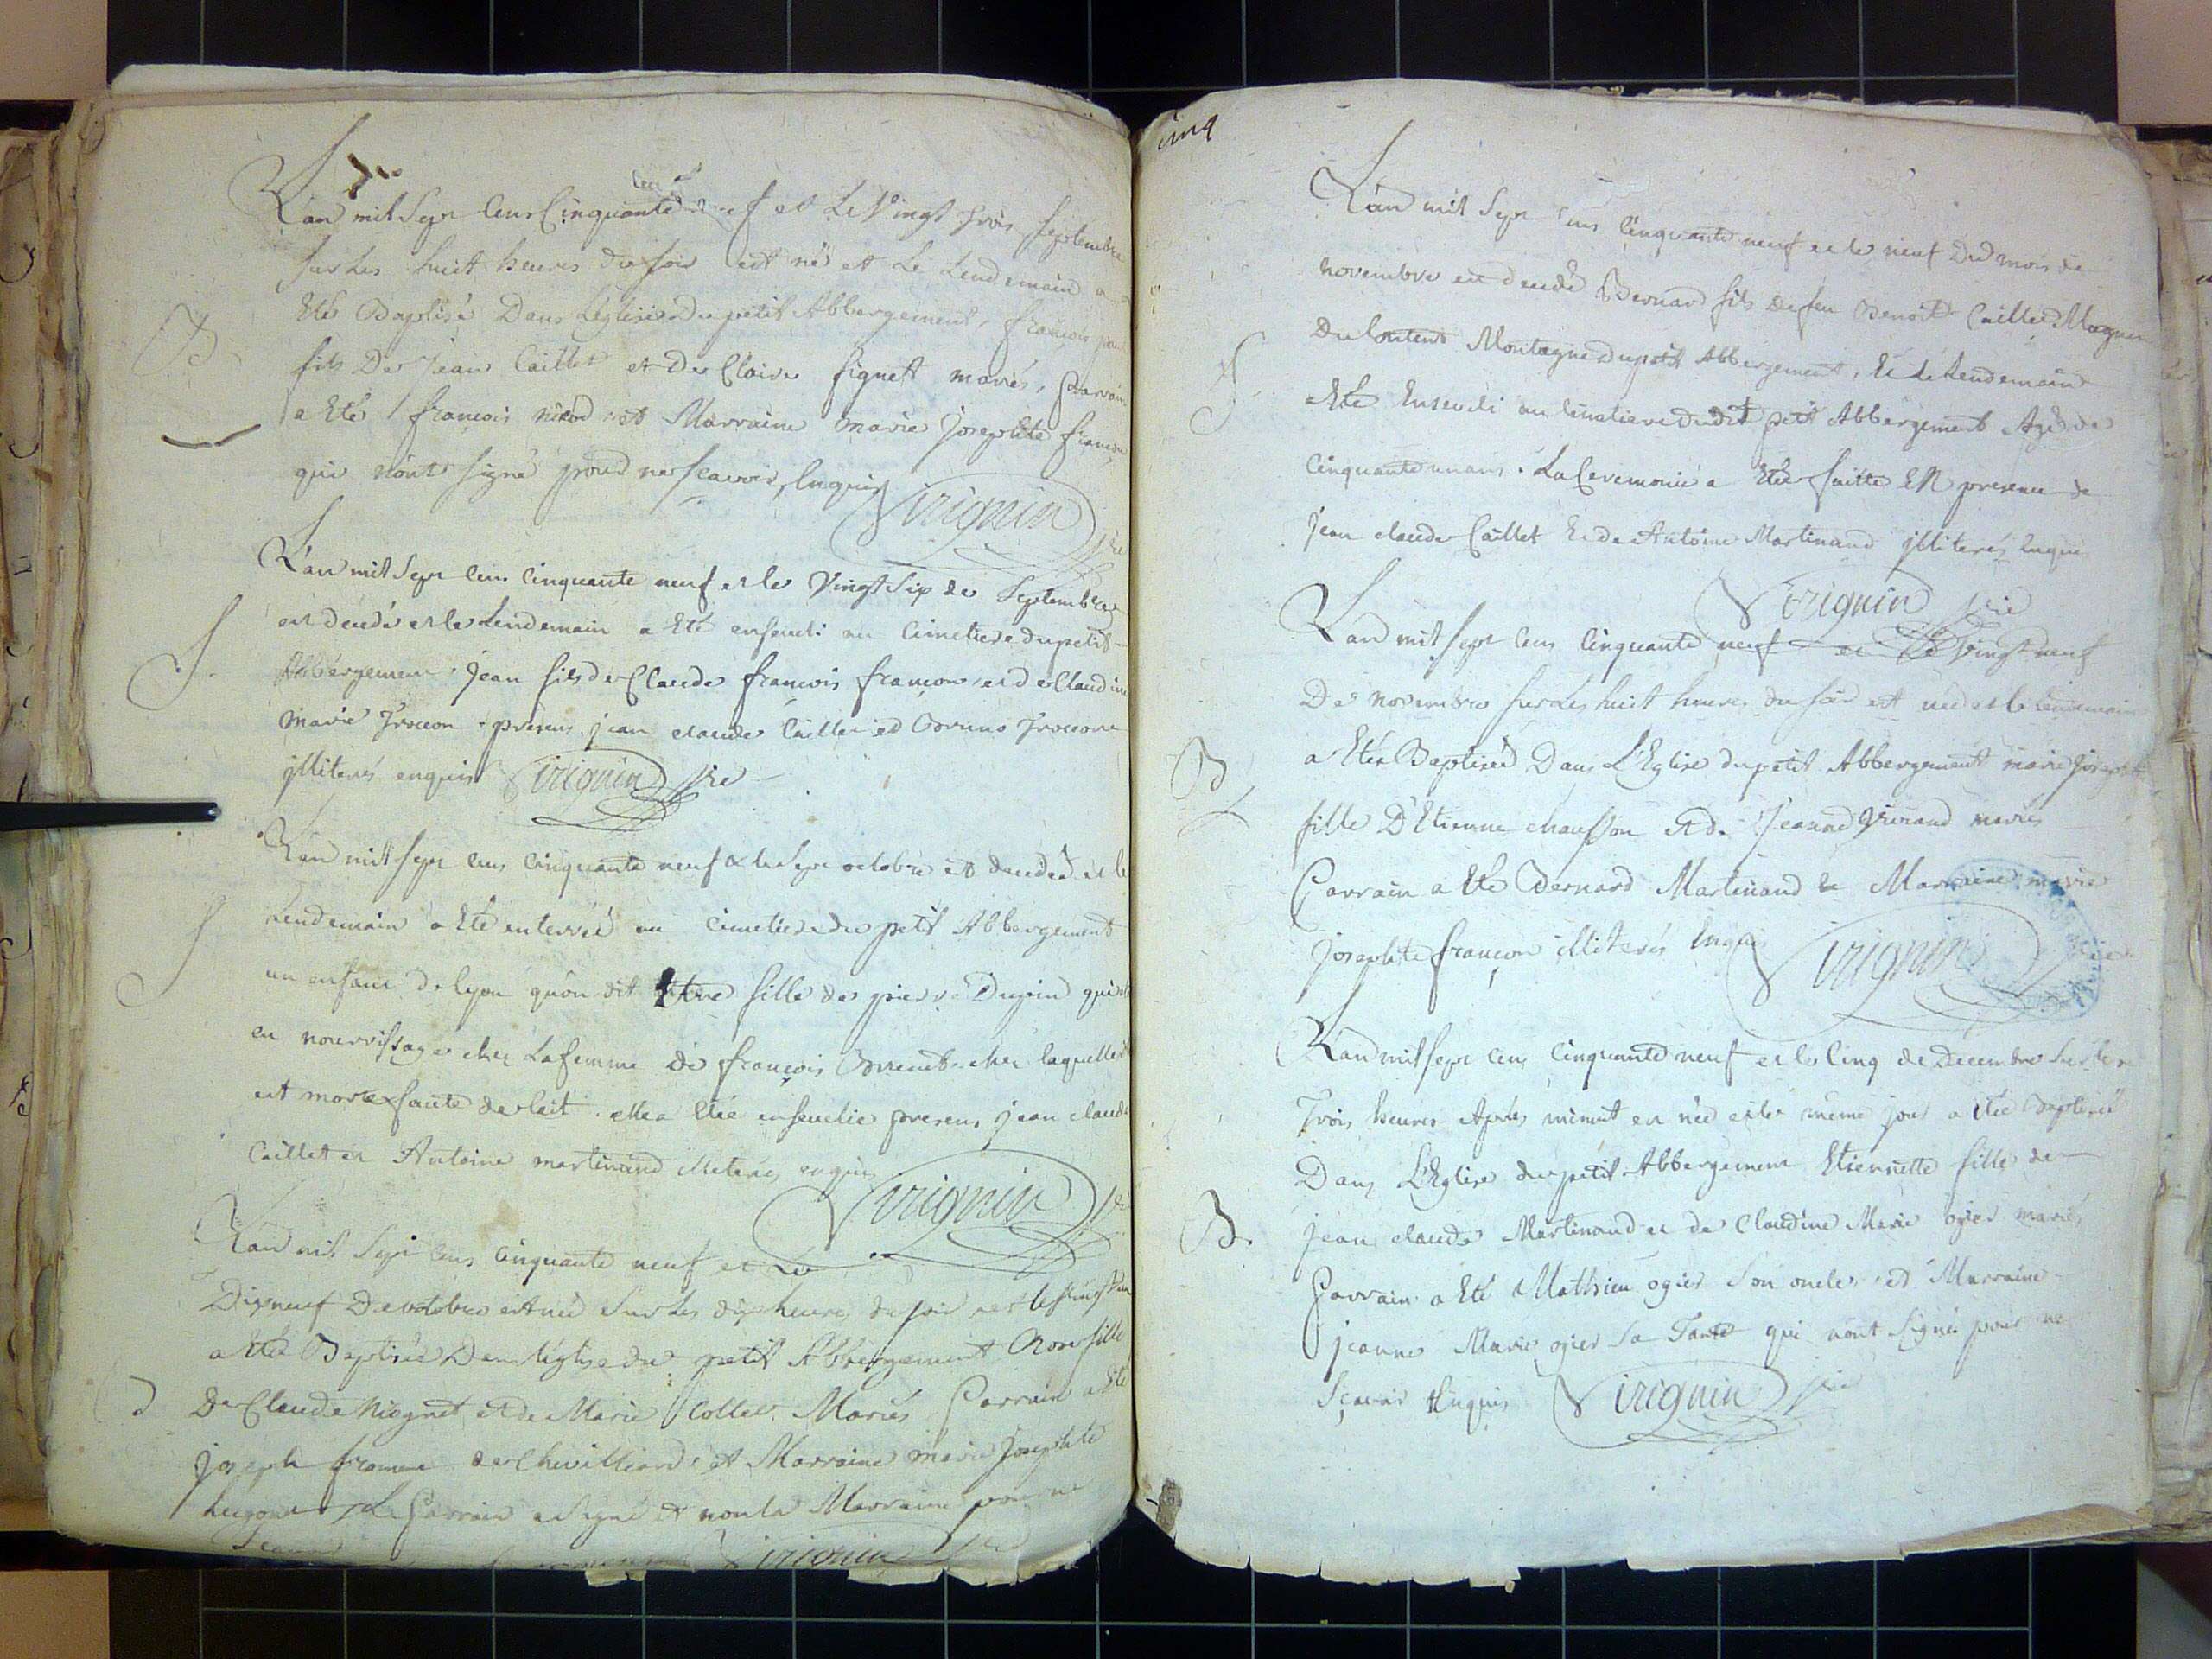 L'an mil Sept Cens Cinquante neuf et Le Vingt trois Septembre
sur Les huit heures du soir est né et Le Lendemain a
Eté Baptisé Dans L'église du petit Abbergement, françois
B
fils De Jean Caillet et De Claire figuet mariés, Parrain
a Eté françois nicod et Marraine marie Josephte françon
qui n'ont signé pour ne scavoir, Enquis Virignin
L'an mil Sept Cens Cinquante neuf et le Vingt Six de Septembre
est decedé et le Lendemain a Eté enseveli au Cimetiere du petit
S.
Abbergement Jean fils de Claude françois françon et de Claudine
Marie Trocon presens jean claude Caillet et Bruno Trocon
jlliterés enquis Virignin
L'an mil sept cens Cinquante neuf & le sept octobre est decedé et le
Lendemain a Eté enterré au Cimetiere du petit Abbergement
S
un enfant de lyon qu'on dit Etre fille de pierre Dupin qui
en nourrissage chez La femme de françois chez laquelle
est morte faute de lait. elle a Eté ensevelie presens jean claude
Caillet et Antoine martinand illiterés enquis
Virignin
L'an mil Sept Cens Cinquante neuf et Le
Dix neuf D'octobre est née Sur Les dix heures du soir et le
a Eté Baptisée Dans L'église du petit Abbergement Rose fille
De Claude Niogret et de Marie Collet Mariés Parrain a Eté
joseph de Chevilliard, et Marraine marie Josephte
Le Parrain a signé et non la Marraine pour ne
Virignin
cinq
L'an mil Sept Cens Cinquante neuf et le neuf Du mois de
novembre est decedé Bernard fils de feu Benoit Caillet
Du Montagne du petit Abbergement, Et Le Lendemain
S
a Eté Enseveli au Cimetiere dudit petit Abbergement Agé de
Cinquante un ans. La Ceremonie a Eté faitte EN presence de
jean claude Caillet Et de Antoine Martinand jlliterés Enquis
Virignin
L'an mil sept Cens Cinquante neuf et le Vingt neuf
De novembre sur Les huit heures du soir est née et le Lendemain
B
a Eté Baptisée Dans L'Eglise du petit Abbergement marie Josephte
fille D'Etienne chausson et de Jeanne mariés
Parrain a Eté Bernard Martinand et Marraine marie
Josephte françon illiterés Enquis Virignin
L'an mil sept Cens Cinquante neuf et le Cinq de Decembre Sur les
Trois heures Après minuit est née et le même jour a Eté Baptisée
Dans L'Eglise du petit Abbergement Etiennette fille de
B.
jean claude Martinand et de Claudine Marie ogier mariés
Parrain a Eté Mathieu ogier Son oncle et Marraine
jeanne Marie ogier Sa Tante qui n'ont Signé pour ne
Sçavoir Enquis Virignin